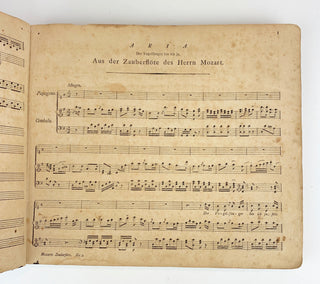 ARIA
Der Vogelfänger bin ich ja.
Aus der Zauberflöte des Herrn Mozart.
Allegro.
Papageno.
Cembalo.
Der Vogelfänger bin ich ja,
Mozarts Zauberflöte.